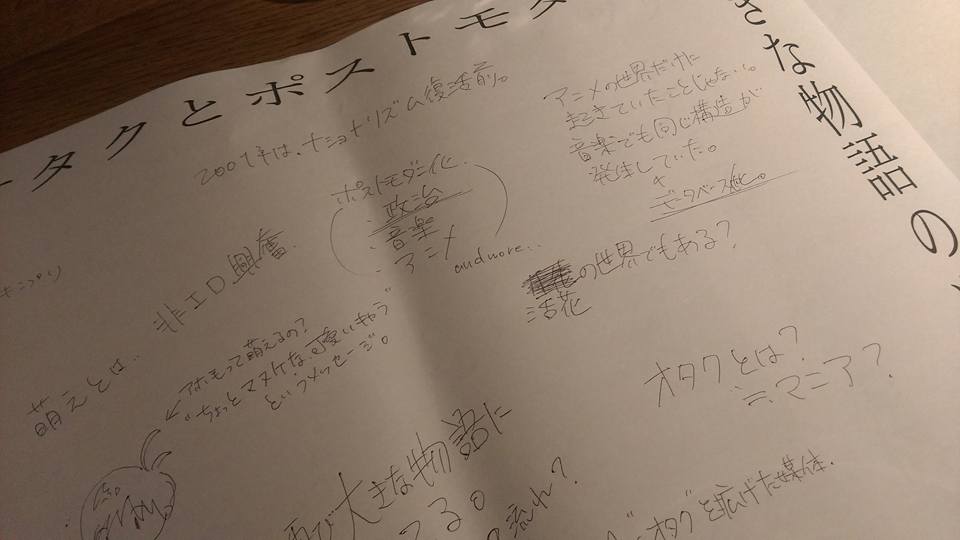 タクとポストモダ
きな物語の
2001年は、ナショナリズム復活前。
ポストモダン化
・政治
・音楽
・アニメ
and more...
アニメの世界だけに
起きていたことじゃない。
音楽でも同じ構造が
発生していた。
データベース化。
の世界でもある?
活花
キンプリ
萌えとは 非エロ興奮.
アホ毛って萌えるの?
"ちょっとマヌケな、可愛いキャラ"
というメッセージ。
オタクとは?
≒マニア?
再び大きな物語に
てる。
流れ?
オタクを拡げた媒体.